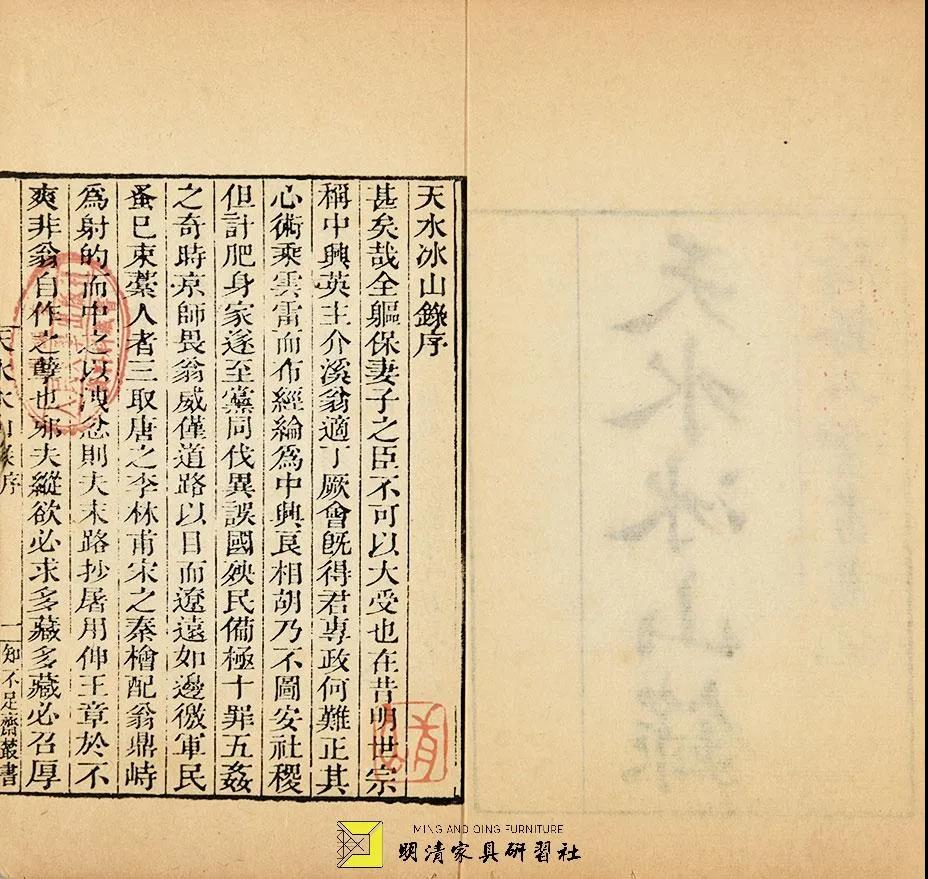 天水冰山錄
天水冰山錄序
甚矣哉全軀保妻子之臣不可以大受也在昔明世宗
稱中興英主介溪翁適丁厥會旣得君專政何難正其
心術乘雲雷而布經綸爲中興良相胡乃不圖安社稷
但計肥身家遂至黨同伐異誤國殃民備極十罪五姦
之奇時京師畏翁威僅道路以目而遼遠如邊徼軍民
蚤已束藁人者三取唐之李林甫宋之秦檜配翁鼎峙
爲射的而中之以洩忿則夫末路抄屠用伸王章於不
爽非翁自作之孽也邪夫縱欲必求多藏多藏必召厚
天水冰山錄序 一 知不足齋叢書
MING AND QING FURNITURE
明清家具研習社